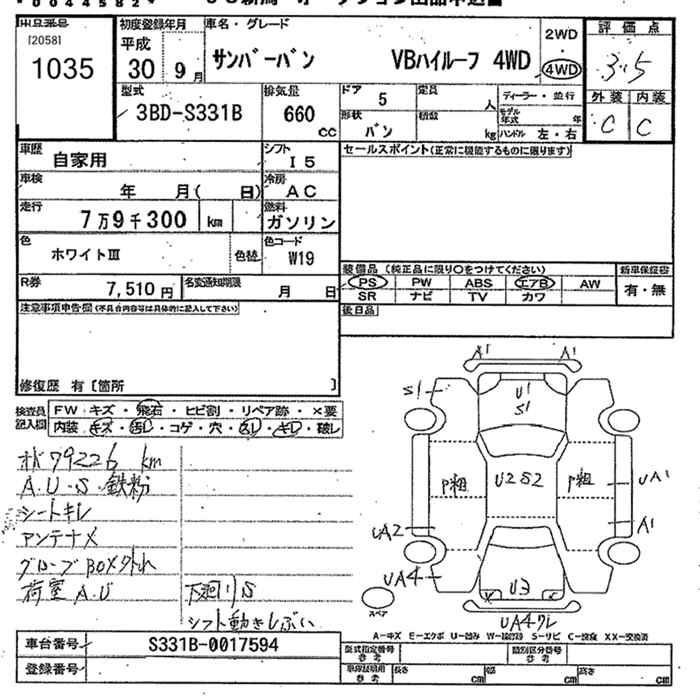 *0044582*
出品番号
[2058]
1035
初度登録年月
平成
30 9月
車名・グレード
サンバーバン VBハイルーフ 4WD
2WD
・
4WD
評価点
3.5
外装 内装
C C
型式
3BD-S331B
排気量
660
cc
ドア 5
定員 人
ディーラー・並行
モデル年式 年
形状 バン
積載 kg
ハンドル 左・右
車歴 自家用
シフト I5
セールスポイント(正常に機能するものに限ります)
車検 年 月( 日)
冷房 AC
走行 7万9千300 km
燃料 ガソリン
色 ホワイトⅢ
色替
色コード W19
R券 7,510円
名変通知期限 月 日
装備品(純正品に限り○をつけてください)
PS PW ABS エアB AW
SR ナビ TV カワ
新車保証書
有・無
後日品
注意事項申告欄(不具合内容等は具体的に記入して下さい)
修復歴 有[箇所 ]
検査員記入欄
FW・キズ・飛石・ヒビ割・リペア跡・×要
内装・キズ・汚レ・コゲ・穴・スレ・キレ・破レ
オバ 79226 km
A.U.S.鉄粉
シートキレ
アンテナメ
グローブBOXメクトレ
荷室 A.U 下廻りS
シフト動きしぶい
A1 A1
S1
U1
S1
P粗 U2S2 P粗
UA1
A1
UA2
UA4
U3
UA4クレ
スペア
A-キズ E-エクボ U-凹み W-補修跡 S-サビ C-腐食 XX-交換済
車台番号 S331B-0017594
登録番号
型式指定番号
参考
類別区分番号
参考
車庫証明用
参考
長さ cm
幅 cm
高さ cm